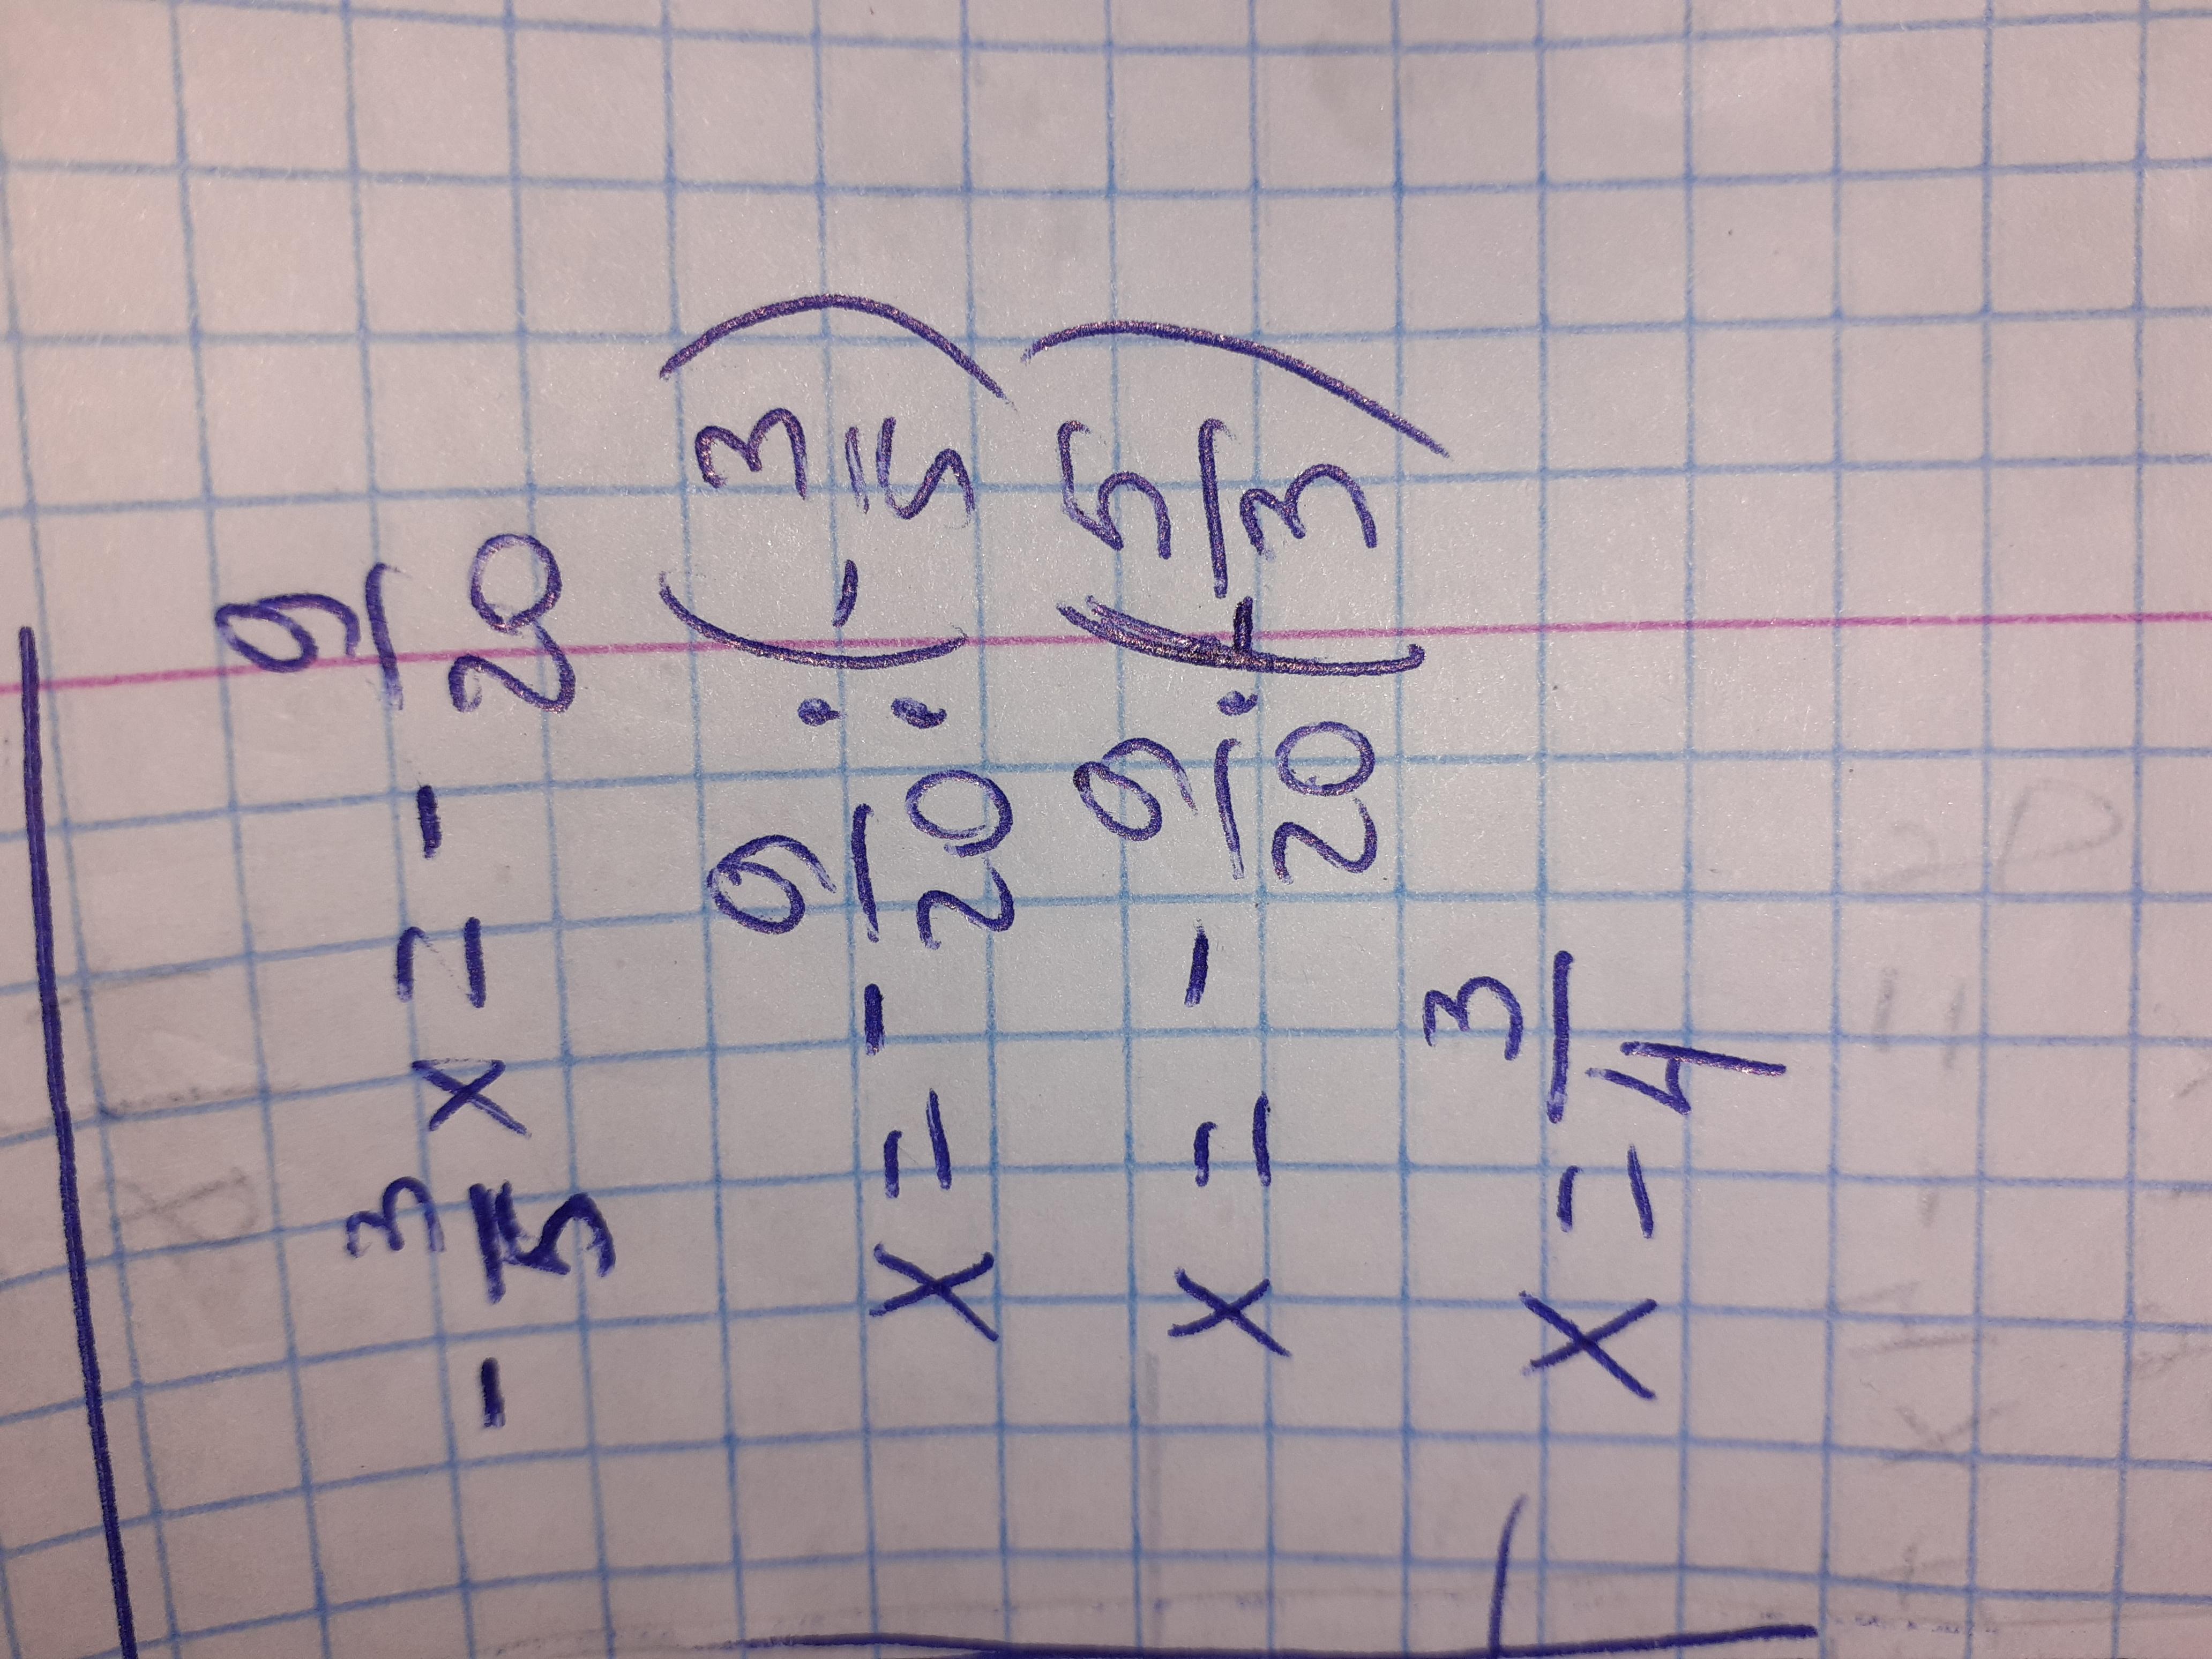 - 3/5 x = - 9/20
x = - 9/20 : (- 3/5)
x = - 9/20 · (- 5/3)
x = 3/4